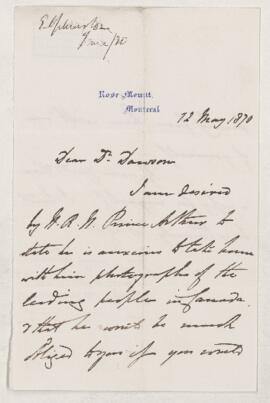 Rose Mount,
Montreal
12 May 1870
Dear Dr. Dawson
I am desired
by H.R.H. Prince Arthur to
state he is anxious to take home
with him photographs of the
leading people in Canada
& that he wd. be much
obliged to you if you would